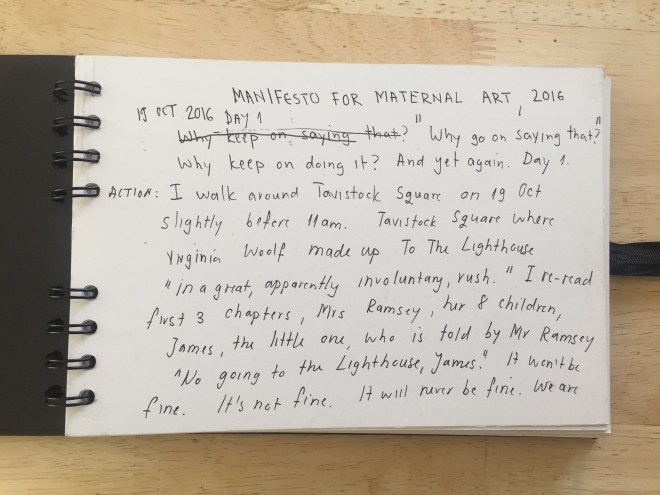 MANIFESTO FOR MATERNAL ART, 2016
19 OCT 2016 DAY 1
Why keep on saying that? "Why go on saying that?"
Why keep on doing it? And yet again. Day 1.
ACTION: I walk around Tavistock Square on 19 Oct
slightly before 11am. Tavistock Square where
Virginia Woolf made up To The Lighthouse
"in a great, apparently involuntary, rush." I re-read
first 3 chapters, Mrs Ramsey, her 8 children,
James, the little one, who is told by Mr Ramsey
"No going to the Lighthouse, James." It won't be
fine. It's not fine. It will never be fine. We are